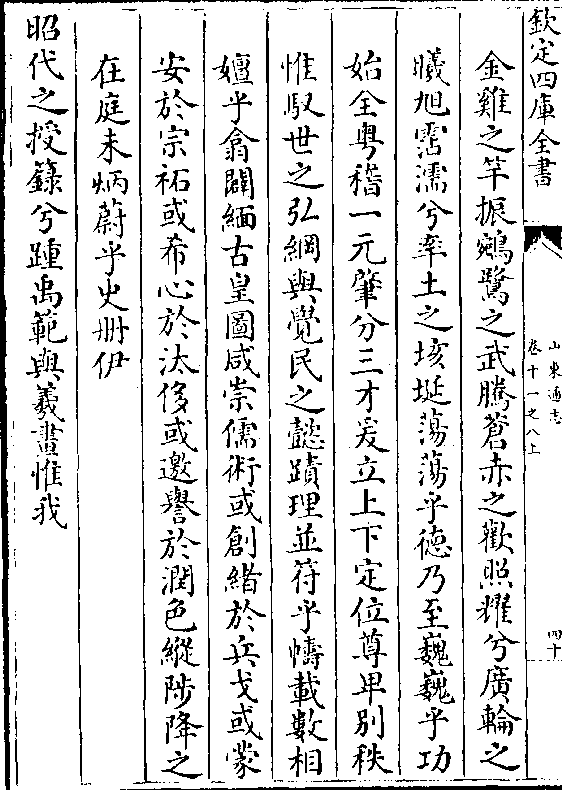 欽定四庫全書
山東通志
卷十一之八上
四十
金雞之竿振鵷鷺之武騰蒼赤之歡照耀兮廣輪之
曦旭霑濡兮率土之垓埏蕩蕩乎德乃至巍巍乎功
始全粵稽一元肇分三才爰立上下定位尊卑別秩
惟馭世之弘綱與覺民之懿蹟理並符乎幬載數相
嬗乎翕闢緬古皇圖咸崇儒術或創緒於兵戈或蒙
安於宗祏或希心於汰侈或邀譽於潤色縱陟降之
在庭未炳蔚乎史冊伊
昭代之授籙兮踵禹範與羲畫惟我